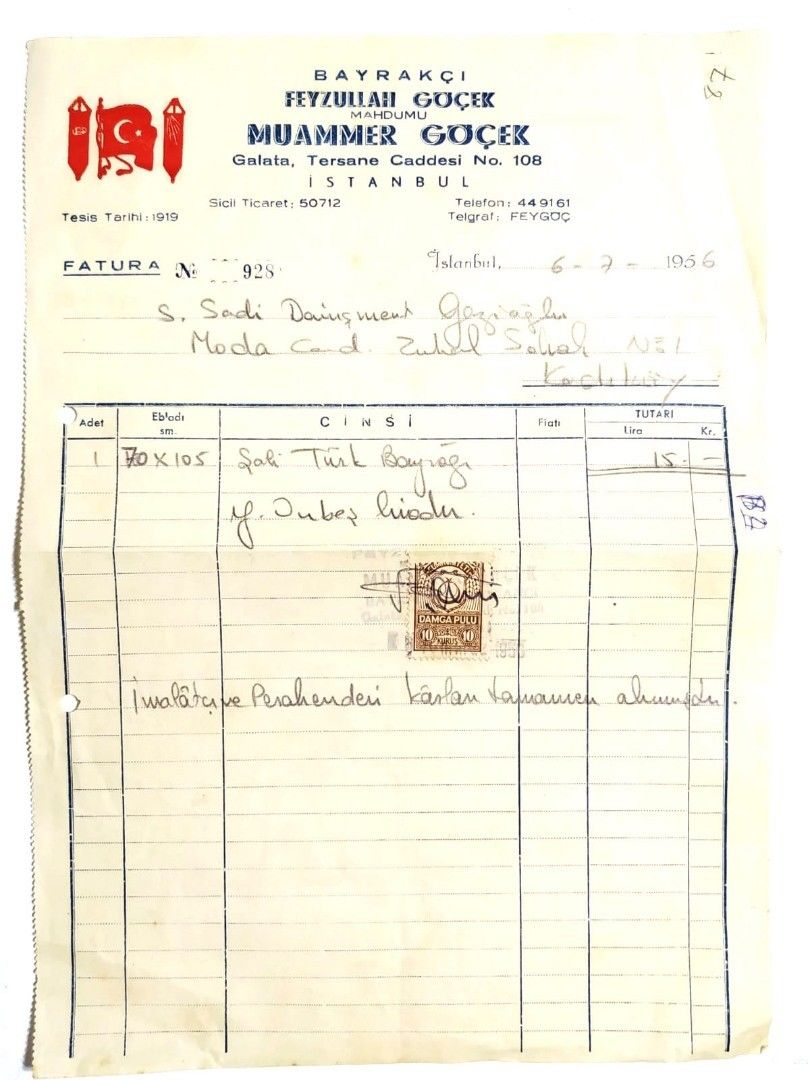 BAYRAKÇI
FEYZULLAH GÖÇEK
MAHDUMU
MUAMMER GÖÇEK
Galata, Tersane Caddesi No. 108
İSTANBUL
Sicil Ticaret: 50712
Telefon: 449161
Tesis Tarihi: 1919
Telgraf: FEYGÖÇ
FATURA № 928
İstanbul, 6-7-1956
S. Sadi Danişment Gazioğlu
Moda Cad. Zuhal Sokak No 1
Kadıköy
Adet Ebtadı sm. CİNSİ Fiatı TUTARI
Lira Kr.
1 70 X 105 Şali Türk Bayrağı 15 -
Y. Onbeş liradır.
DAMGA PULU
10 KURUŞ 10
İmalâtçı ve Perakendeci kârları tamamen alınmıştır.